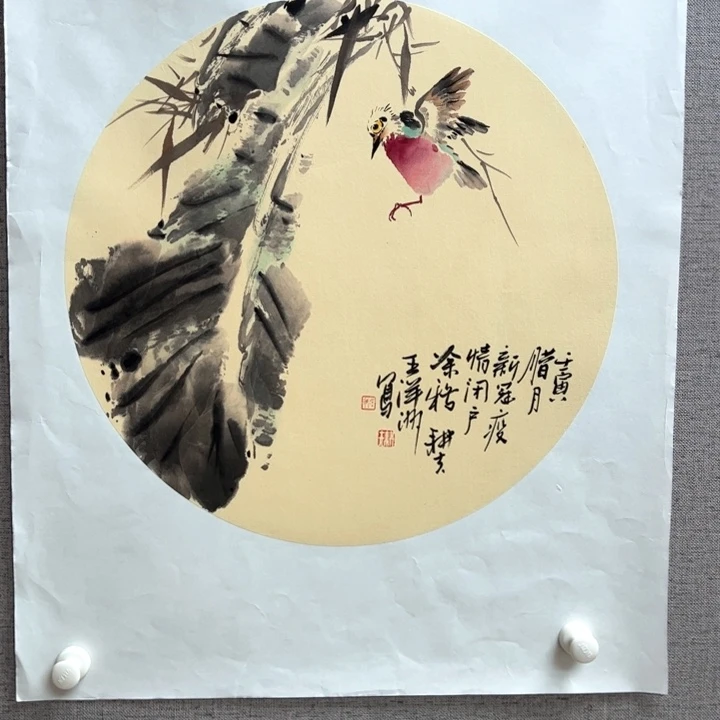 壬寅
腊月
新冠疫
情闭户
涂鸦 耕夫
王洋洲
写